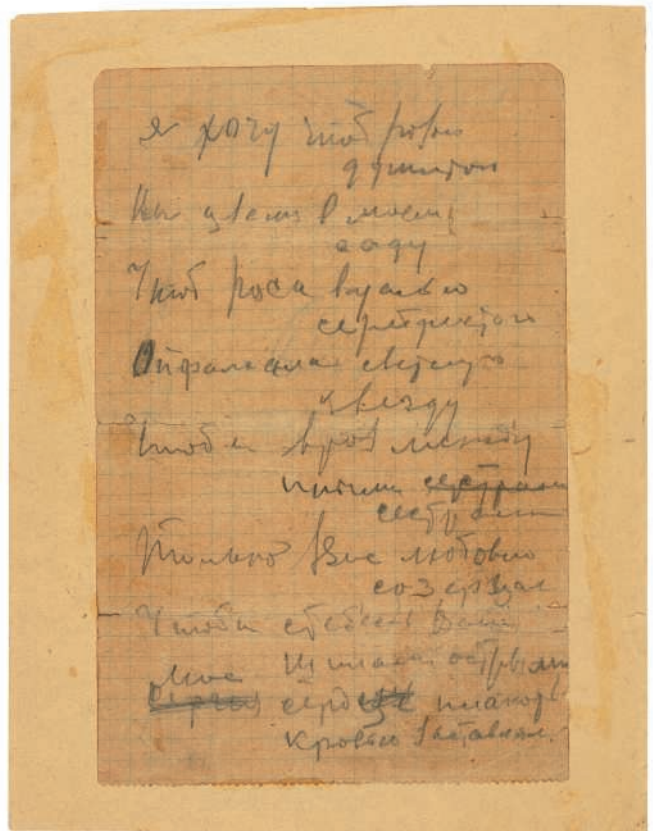 Я хочу чтоб розою
душистою
Вы цвели в моем
саду
Чтоб роса вуалью
серебристою
Отражала светлую
звезду
Чтоб я врозь между
иными
сестрами
Только Вас любовью
созерцал
Чтобы стебель Ваш
Шипами острыми
Мое сердце плакать
кровью заставлял.